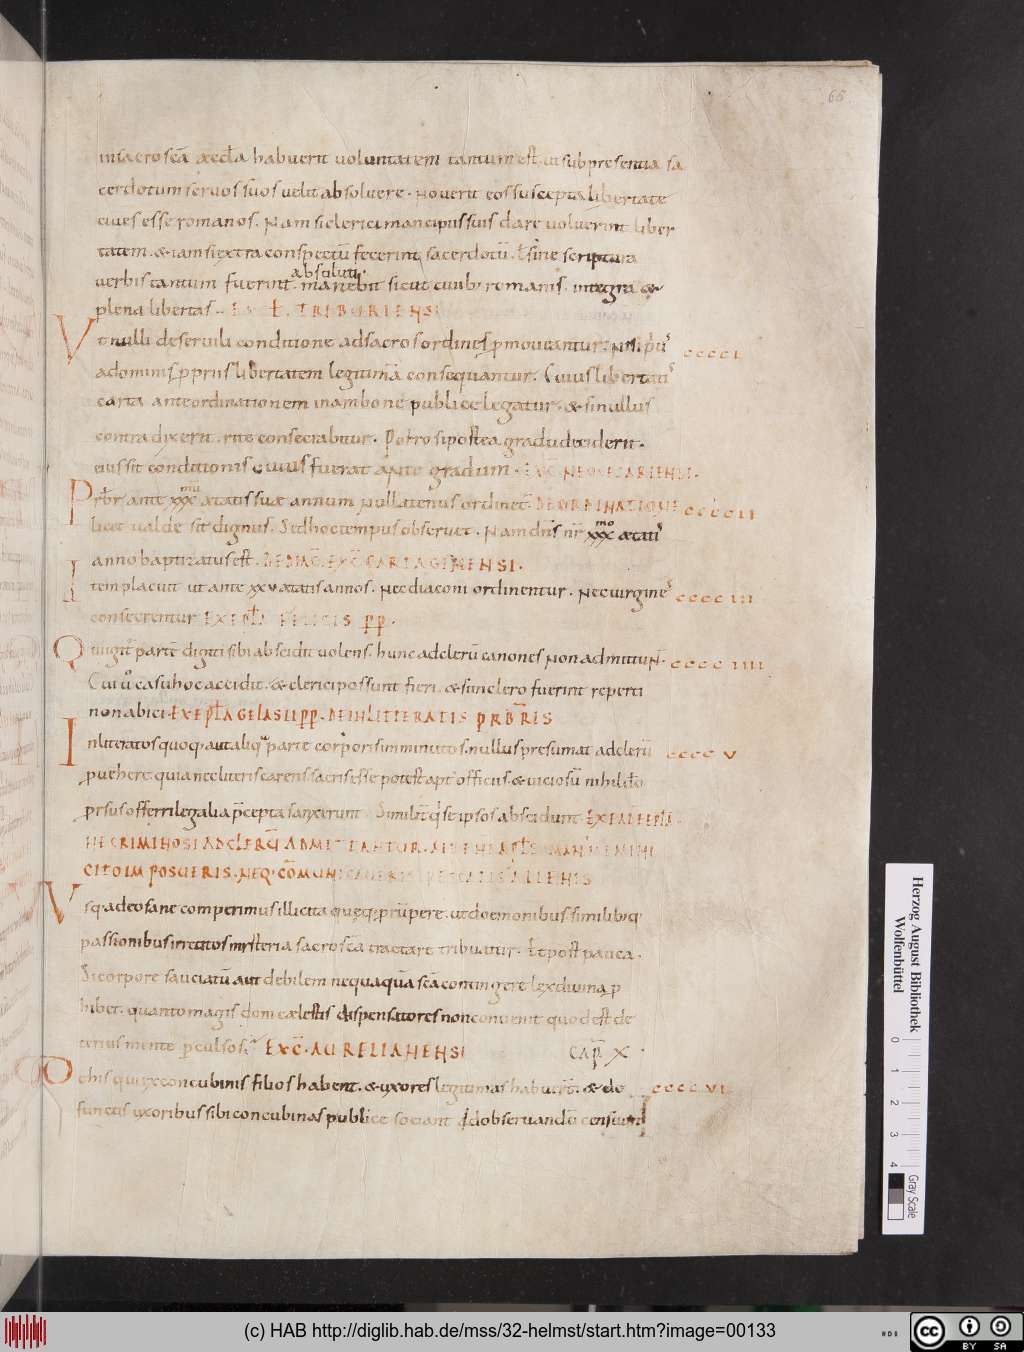 66
in sacro scā æccl̄a habuerit voluntatem tantum est. ut sub presentia sa
cerdotum servos suos velit absolvere. Noverit eos suscepta libertate
cives esse romanos. Nam si clerici mancipiis suis dare voluerint liber
tatem. & iam si extra conspectū fecerint sacerdotū. ł sine scriptura
absoluti
verbis tantum fuerint. manebit sicut civib; romanis. integra &
plena libertas. EX C̄. TRIBURIENSI
Ut nulli de servili conditione ad sacros ordines p̄moveantur. nisi pri᷒
CCCCI
a dominis ppriis libertatem legitimā consequantur. Cuius libertatis
carta ante ordinationem in ambone publice legatur. & si nullus
contradixerit. rite consecrabitur. Porro si postea gradu deciderit.
eius sit conditionis cuius fuerat ante gradum. EXC̄ NEOCESARIENSI.
mū
Prb̄r ante xxx ætatis suæ annum nullatenus ordinet̄. DE ORDINATIONE
CCCCII
licet valde sit dignus. Sed hoc tempus observet. Nam dn̄s nr̄ xxx ætatis
mo
anno baptizatus est. DE DIAC̄. EXC̄ CARTAGINENSI.
Item placuit ut ante xxv ætatis annos. nec diaconi ordinentur. nec virgines
CCCCIII
consecrentur EX EPL̄A FELICIS PP.
Qui igit̄ partē digiti sibi abscidit volens. hunc ad clerū canones non admittunt.
CCCCIIII
Cui v̊ casu hoc accidit. & clerici possunt fieri. & si in clero fuerint reperti
non abici. EX EPL̄A GELASII PP. DE INLITTERATIS PRB̄RIS
Inliteratos quoq; aut aliq̄ parte corporis imminutos. nullus presumat ad clerū
CCCCV
pvehere quia nec literis carens sacris esse potest apt᷒ officiis. & viciosū nihil dō
prsus offerri legalia p̄cepta sanxerunt. Similit̄ q̄ se ipsos abscidunt. EX EADĒ EPL̄A.
NE CRIMINOSI AD CLERŪ ADMITTANTUR. AIT ENĪ APL̄S. MANUS NEMINI
CITO IMPOSUERIS. NEQ. CŌMUNICAVERIS PECCATIS ALIENIS
Usq; adeo sane comperimus illicita queq; prūpere. ut dæmonibus similibusq;
passionibus irretitos mysteria sacroscā tractare tribuatur. Et post pauca.
Si corpore sauciatū aut debilem nequaquā scā contingere lex divina p
hibet. quanto magis doni cælestis dispensatores non convenit quod est de
terius mente pculsos. EXC̄. AURELIANENSI
CAP̄ X
De his qui ex concubinis filios habent. & uxores legitimas habuer̄. & de
CCCCVI
functis uxoribus sibi concubinas publice sociant. Id observandū censuim᷒
Herzog August Bibliothek
Wolfenbüttel
0 1 2 3 4
Gray Scale
(c) HAB http://diglib.hab.de/mss/32-helmst/start.htm?image=00133
cc BY SA